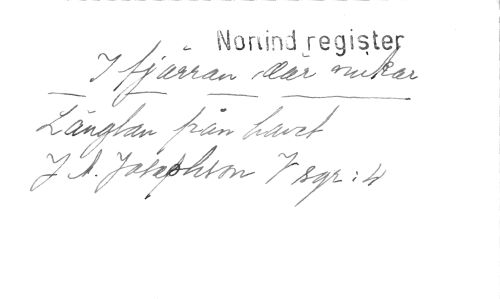 Norlind register
I fjärran där vinkar
Längtan från havet
J. A. Josephson V sgr: 4